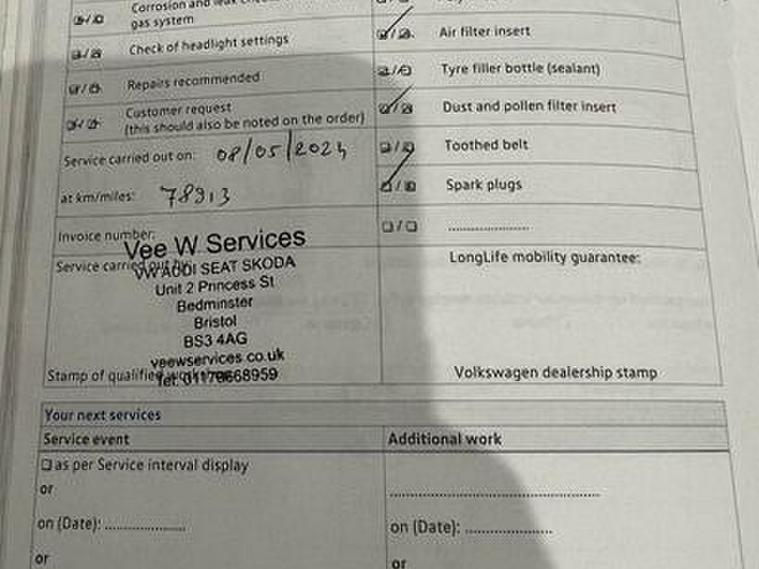 Corrosion and leak
gas system
Check of headlight settings
Repairs recommended
Customer request
(this should also be noted on the order)
Service carried out on: 08/05/2024
at km/miles: 78913
Invoice number:
Vee W Services
Service carried out by:
VW AUDI SEAT SKODA
Unit 2 Princess St
Bedminster
Bristol
BS3 4AG
veewservices.co.uk
Stamp of qualified
Tel: 01179668959
Air filter insert
Tyre filler bottle (sealant)
Dust and pollen filter insert
Toothed belt
Spark plugs
....................
LongLife mobility guarantee:
Volkswagen dealership stamp
Your next services
Service event
Additional work
as per Service interval display
or
on (Date): ....................
or
........................................
on (Date): ....................
or